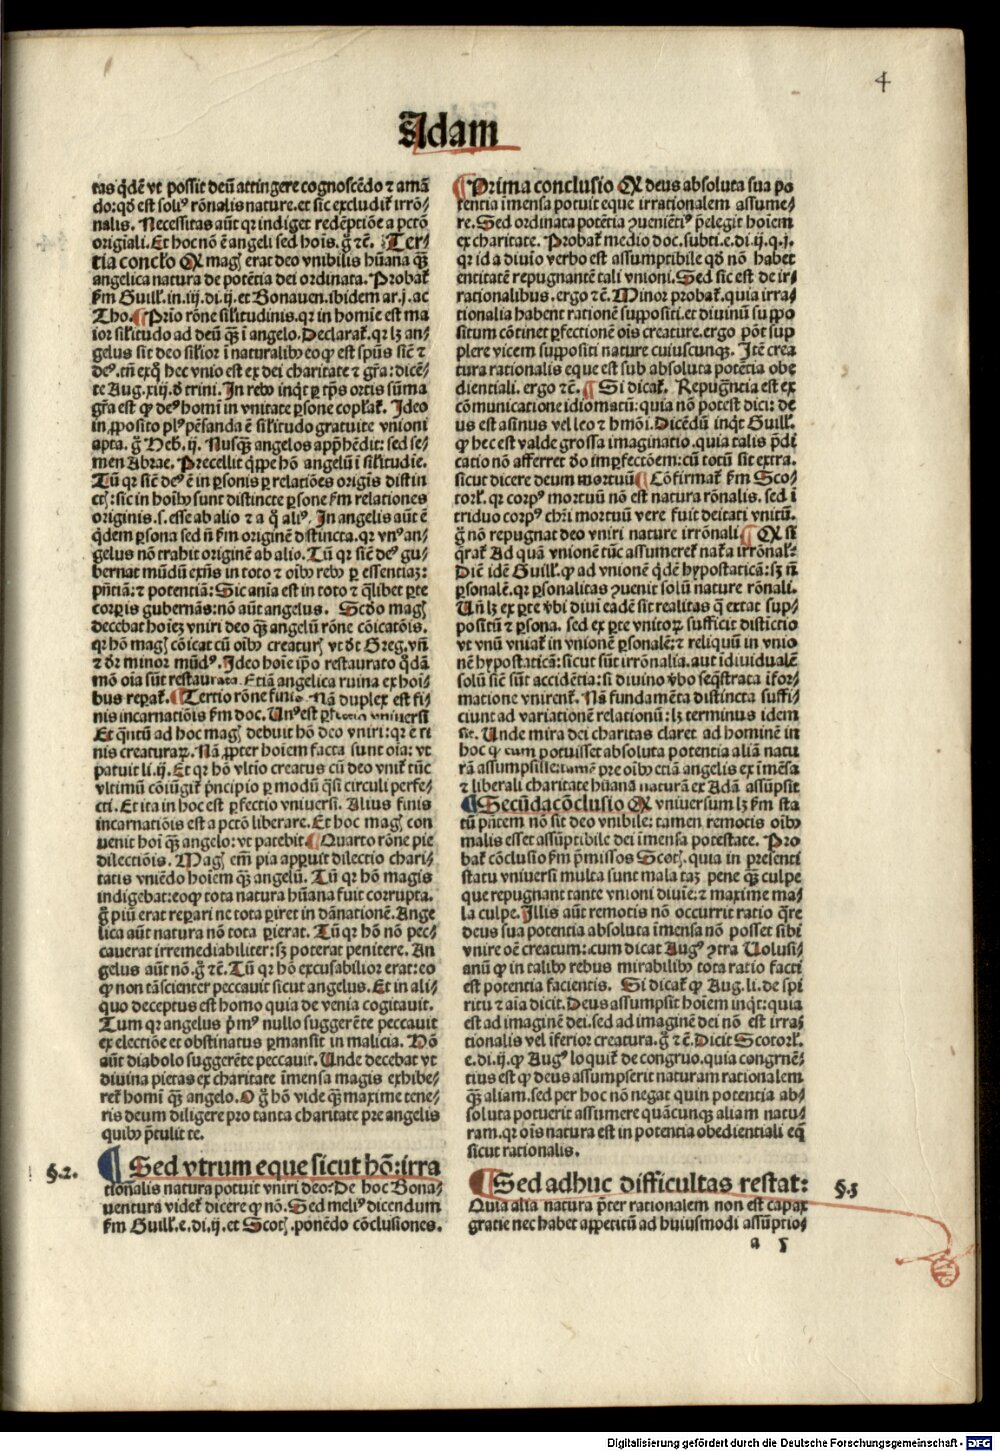 4
Adam
tas q̇dẽ vt possit deũ attingere cognoscẽdo ⁊ amã
do: qd̕ est soliꝰ rõnalis nature. et sic excludit̃ irrõ⸗
nalis. Necessitas aũt qr indiget redẽptiõe a pctõ
origiali. Et hoc nõ ẽ angeli sed hoĩs. g̃ ⁊c̃. Ter⸗
tia concło Q mag̃ erat deo vnibilis hũana q̃ꝫ
angelica natura de potẽtia dei ordinata. Probat̃
ẜm Guilł. in. iij. di. ij. et Bonauen. ibidem ar. j. ac
Tho. ¶ Prio rõne siłitudinis. qr in homĩe est ma
ior siłitudo ad deũ q̃ꝫ ĩ angelo. Declarat̃. qr lꝫ an⸗
gelus sit deo siłior ĩ naturalibꝰ eo qꝫ est spũs siẽ ⁊
deꝰ. tñ exq̊ hec vnio est ex dei charitate ⁊ gr̃a: dicẽ⸗
te Aug. xiij. d̕ trini. In rebꝰ inqt̃ ꝑ tp̃s ortis sũma
gr̃a est ꝙ deꝰ homĩ in vnitate ꝑsone copłat̃. Ideo
in ꝓposito plꝰ pẽsanda ẽ siłitudo gratuite vnioni
apta. g̃ Heb. ij. Nusq̃ꝫ angelos apphẽdit: sed se⸗
men Abrae. Precellit q̃ppe hõ angelũ ĩ siłitudie.
Tũ qr siẽ deꝰ ẽ in ꝑsonis ꝑ relatiões origĩs distin
ctꝰ: sic in hoĩbꝰ sunt distincte ꝑsone ẜm relationes
originis. s. esse ab alio ⁊ a q̊ aliꝰ. In angelis aũt ẽ
q̇dem ꝑsona sed ñ ẜm originẽ distincta. qr vnꝰ an⸗
gelus nõ trahit originẽ ab alio. Tũ qr siẽ deꝰ gu⸗
bernat mũdũ exñs in toto ⁊ oĩbꝰ rebꝰ ꝑ essentiaꝫ:
pñtiã: ⁊ potentiã: Sic aĩa est in toto ⁊ q̃libet ꝑte
corꝑis gubernãs: nõ aũt angelus. Scd̕o mag̃
decebat hoiẽꝫ vniri deo q̃ꝫ angelũ rõne cõicatõis.
qr hõ mag̃ cõicat cũ oĩbꝰ creaturꝭ vt d̕t Greg. vñ
⁊ d̕r minor mũdꝰ. Ideo hoĩe ip̃o restaurato q̊dã
mõ oĩa sũt restaurata. Etiã angelica ruina ex hoĩ⸗
bus reꝑat̃. ¶ Tertio rõne finis. Nã duplex est fi⸗
nis incarnatiõis ẜm doc. Unꝰ est ꝑfectio vniuersi
Et q̃ntũ ad hoc mag̃ debuit hõ deo vniri: qr ẽ fi
nis creaturaꝝ. Nã ꝓpter hoĩem facta sunt oĩa: vt
patuit li. ij. Et qr hõ vltĩo creatus cũ deo vnit̃ tũc
vltimũ cõiũgit̃ p̃ncipio ꝑ modũ q̃si circuli perfe⸗
cti. Et ita in hoc est ꝑfectio vniuersi. Alius finis
incarnatiõis est a pctõ liberare. Et hoc mag̃ con
uenit hoĩ q̃ꝫ angelo: vt patebit. ¶ Quarto rõne pie
dilectiõis. Mag̃ em̃ pia apꝑuit dilectio chari⸗
tatis vniẽdo hoĩem q̃ꝫ angelũ. Tũ qr hõ magis
indigebat: eo ꝙ tota natura hũana fuit corrupta.
g̃ piũ erat reꝑari ne tota ꝑiret in dãnationẽ. Ange
lica aũt natura nõ tota ꝑierat. Tũ qr hõ nõ pec⸗
cauerat irremediabiliter: sꝫ poterat penitere. An
gelus aũt nõ. g̃ ⁊c̃. Tũ qr hõ excusabilior erat: eo
ꝙ non tã scienter peccauit sicut angelus. Et in ali⸗
quo deceptus est homo quia de venia cogitauit.
Tum qr angelus p̃mꝰ nullo suggerẽte peccauit
ex electiõe et obstinatus ꝑmansit in malicia. Hõ
aũt diabolo suggerẽte peccauit. Unde decebat vt
diuina pietas ex charitate ĩmensa magis exhibe⸗
ret̃ homĩ q̃ꝫ angelo. O g̃ hõ vide q̃ꝫ maxime tene⸗
ris deum diligere pro tanta charitate pre angelis
quibꝰ p̃tulit te.
§. 2.
¶ Sed vtrum eque sicut hõ: irra
tiõnalis natura potuit vniri deo: De hoc Bona⸗
uentura videt̃ dicere ꝙ nõ. Sed meliꝰ dicendum
ẜm Guilł. e. di. ij. et Scotꝭ. ponẽdo cõclusiones.
¶ Prima conclusio Q deus absoluta sua po
tentia ĩmensa potuit eque irrationalem assume⸗
re. Sed ordinata potẽtia ꝯueniẽtiꝰ p̃elegit hoĩem
ex charitate. Probat̃ medio doc. subti. e. di. ij. q. j.
qr id a diuĩo verbo est assumptibile qd̕ nõ habet
entitatẽ repugnantẽ tali vnioni. Sed sic est de ir⸗
rationalibus. ergo ⁊c̃. Minor probat̃. quia irra⸗
tionalia habent rationẽ suppositi. et diuinũ suppo
situm cõtinet ꝑfectionẽ oĩs creature. ergo põt sup
plere vicem suppositi nature cuiuscunqꝫ. Itẽ crea
tura rationalis eque est sub absoluta potẽtia obe
dientiali. ergo ⁊c̃. ¶ Si dicat̃. Repug̃ntia est ex
cõmunicatione idiomatũ: quia nõ potest dici: de
us est asinus vel leo ⁊ hmõi. Dicẽdũ inqt̃ Guilł.
ꝙ hec est valde grossa imaginatio. quia talis p̃di
catio nõ afferret d̕o imꝑfectõem: cũ totũ sit extra.
sicut dicere deum mortuũ ¶ Cõfirmat̃ ẜm Sco⸗
torł. qr corpꝰ mortuũ nõ est natura rõnalis. sed ĩ
triduo corpꝰ chr̃i mortuũ vere fuit deitati vnitũ.
g̃ nõ repugnat deo vniri nature irrõnali. ¶ Q si
q̃rat̃ Ad quã vnionẽ tũc assumeret̃ nat̃a irrõnał:
Diẽ idẽ Guilł. ꝙ ad vnionẽ q̇dẽ hypostaticã: sꝫ ñ
ꝑsonalẽ. qr ꝑsonalitas ꝯuenit solũ nature rõnali.
Uñ lꝫ ex ꝑte v̕bi diuĩ eadẽ sit realitas q̃ extat sup⸗
positũ ⁊ ꝑsona. sed ex ꝑte vnitoꝝ sufficit distictio
vt vnũ vniat̃ in vnionẽ ꝑsonalẽ: ⁊ reliquũ in vnio
nẽ hypostaticã: sicut sũt irrõnalia. aut ĩdiuidualẽ
solũ siẽ sũt accidẽtia: si diuino v̕bo seq̃strata ĩfor⸗
matione vnirent̃. Nã fundamẽta distincta suffi⸗
ciunt ad variationẽ relationũ: lꝫ terminus idem
sit. Unde mira dei charitas claret ad hominẽ in
hoc ꝙ cum potuisset absoluta potentia aliã natu
rã assumpsisse: tamẽ pre oĩbꝰ etiã angelis ex ĩmẽsa
⁊ liberali charitate hũanã naturã ex Adã assũpsit
¶ Secũda cõclusio Q vniuersum lꝫ ẜm sta
tũ pñtem nõ sit deo vnibile: tamen remotis oĩbꝰ
malis esset assũptibile dei ĩmensa potestate. Pro
bat̃ cõclusio ẜm p̃missos Scotꝭ. quia in presenti
statu vniuersi multa sunt mala taꝫ pene q̃ꝫ culpe
que repugnant tante vnioni diuĩe: ⁊ maxime ma⸗
la culpe. Illis aũt remotis nõ occurrit ratio q̃re
deus sua potentia absoluta ĩmensa nõ posset sibi
vnire oẽ creatum: cum dicat Augꝰ ꝯtra Uolusi⸗
anũ ꝙ in talibꝰ rebus mirabilibꝰ tota ratio facti
est potentia facientis. Si dicat̃ ꝙ Aug. li. de spi
ritu ⁊ aĩa dicit. Deus assumpsit hoĩem inqt̃: quia
est ad imaginẽ dei. sed ad imaginẽ dei nõ est irra⸗
tionalis vel ĩferior creatura. g̃ ⁊c̃. Dicit Scotorł.
e. di. ij. ꝙ Augꝰ loquit̃ de congruo. quia congruẽ⸗
tius est ꝙ deus assumpserit naturam rationalem
q̃ꝫ aliam. sed per hoc nõ negat quin potentia ab⸗
soluta potuerit assumere quãcunqꝫ aliam natu⸗
ram. qr oĩs natura est in potentia obedientiali eq̃
sicut rationalis.
¶ Sed adhuc difficultas restat:
§. 3
Quia alia natura p̃ter rationalem non est capax
gratie nec habet appetitũ ad huiusmodi assũptio⸗
a 5
Digitalisierung gefördert durch die Deutsche Forschungsgemeinschaft - DFG